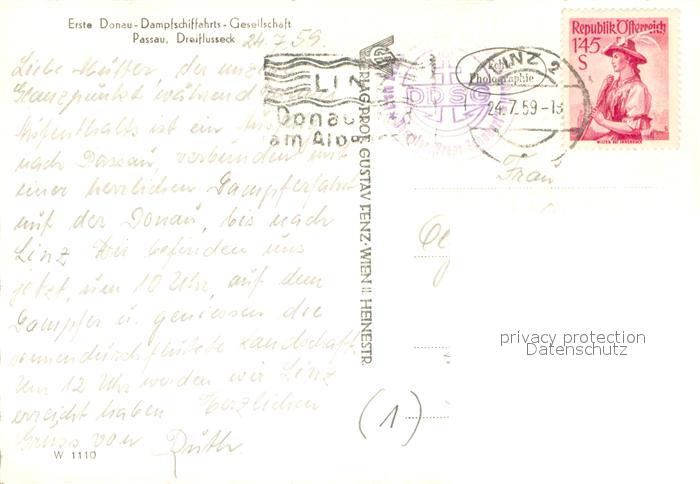 Erste Donau-Dampfschiffahrts-Gesellschaft
Passau, Dreiflusseck
24.7.59
Liebe Mutter, der
Glanzpunkt während
ist ein
nach Passau, verbunden mit
einer herrlichen Dampferfahrt
auf der Donau, bis nach
Linz. Wir befinden uns
jetzt, um 10 Uhr, auf dem
Dampfer u. geniessen die
sonnendurchflutete Landschaft.
Um 12 Uhr werden wir Linz
erreicht haben. Herzlichen
Gruss von Ruth.
W 1110
VERLAG PROF. GUSTAV FENZ·WIEN II, HEINESTR.
LINZ
Donau
am Alpe
DDSG
Echte
Photographie
LINZ 2
24.7.59-18
Republik Österreich
1'45
S
WILTEN BEI INNSBRUCK
Frau
(1)
privacy protection
Datenschutz